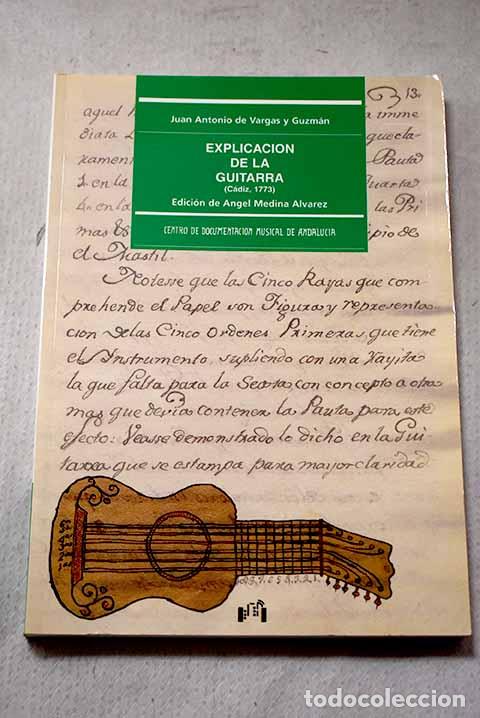 13
Juan Antonio de Vargas y Guzmán
EXPLICACION
DE LA
GUITARRA
(Cádiz, 1773)
Edición de Angel Medina Alvarez
CENTRO DE DOCUMENTACION MUSICAL DE ANDALUCIA
aquel
diata
xamen
Pauta
en la
Pri
mas
ipio de
el Mastil.
Notesse que las Cinco Rayas que com-
prehende el Papel son Figura y representa-
cion de las Cinco Ordenes Primeras, que tiene
el Instrumento, supliendo con una Rayita
la que falta para la Sexta con concepto a otra
mas que devia contener la Pauta para este
efecto: Veasse demonstrado lo dicho en la Gui
tarra que se estampa para mayor claridad
todocoleccion